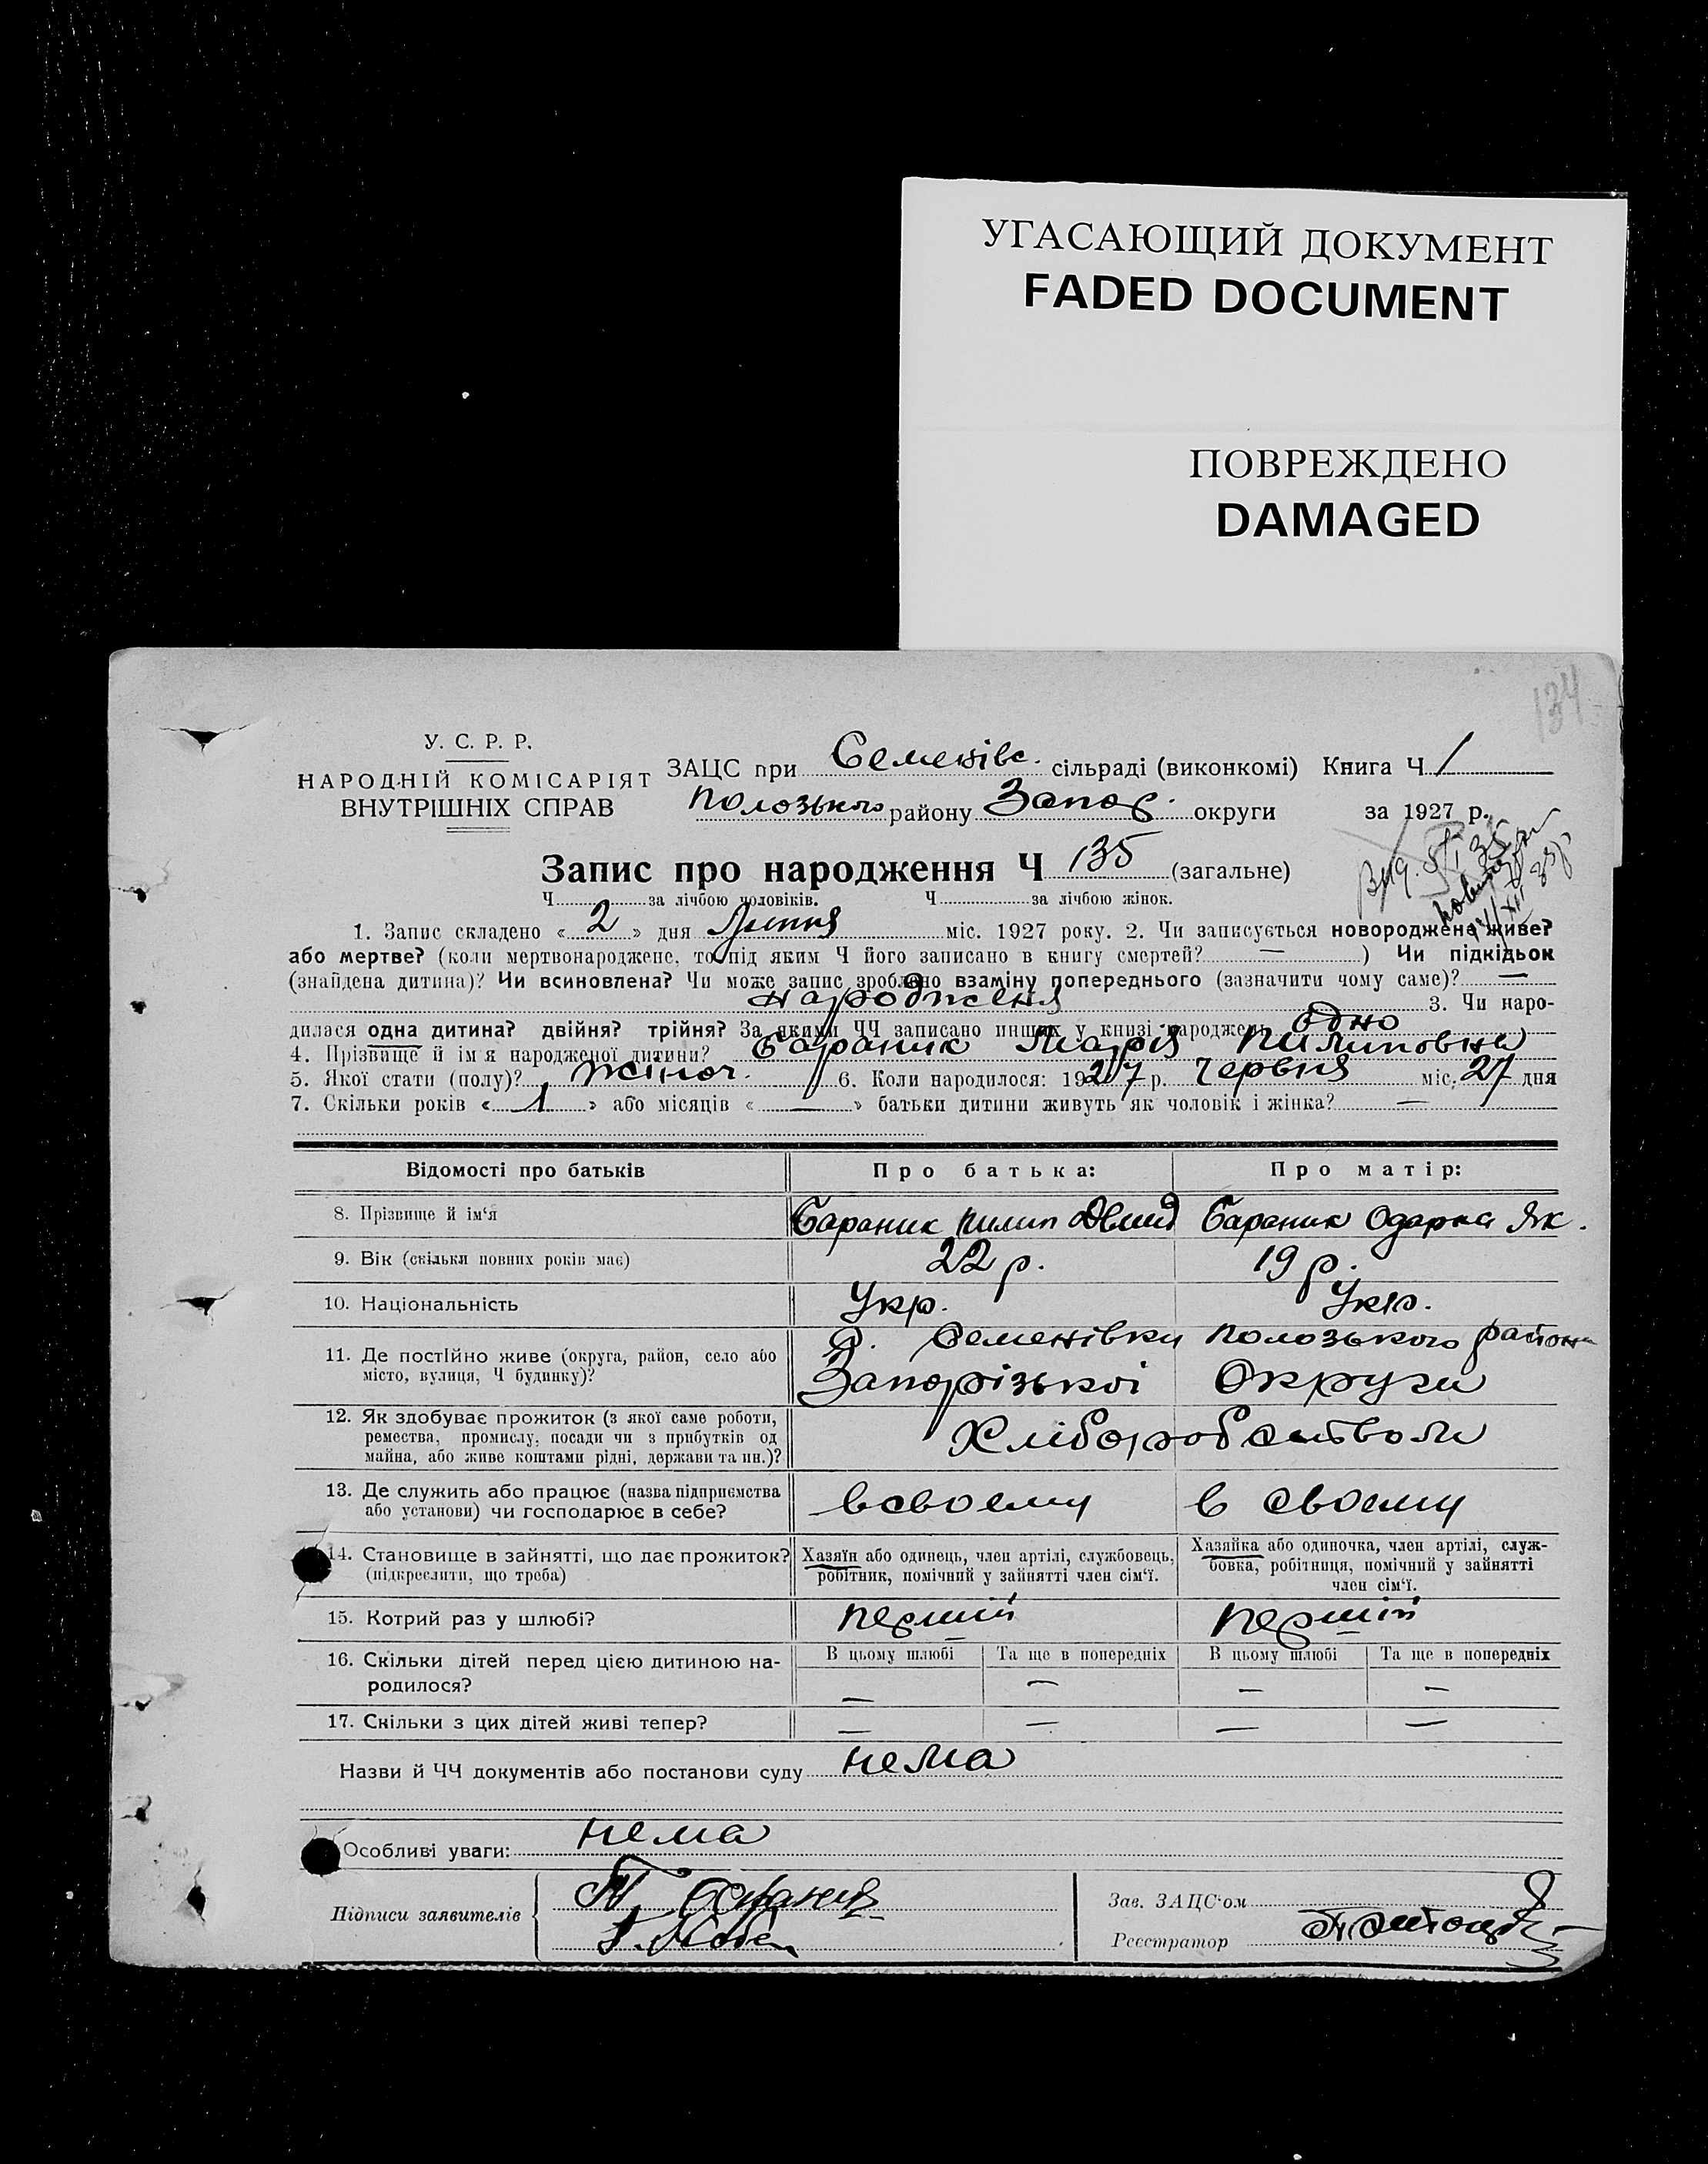 УГАСАЮЩИЙ ДОКУМЕНТ
FADED DOCUMENT
ПОВРЕЖДЕНО
DAMAGED
134
У. С. Р. Р.
НАРОДНІЙ КОМІСАРІЯТ
ВНУТРІШНІХ СПРАВ
ЗАЦС при Семенівс. сільраді (виконкомі) Книга Ч 1
Полозького району Запор. округи за 1927 р.
Запис про народження Ч 135 (загальне)
Ч за лічбою чоловіків. Ч за лічбою жінок.
1. Запис складено « 2 » дня Липня міс. 1927 року. 2. Чи записується новороджене живе?
або мертве? (коли мертвонароджене, то під яким Ч його записано в книгу смертей? — ) Чи підкідьок
(знайдена дитина)? Чи всиновлена? Чи може запис зроблено взаміну попереднього (зазначити чому саме)? —
народженя 3. Чи наро-
дилася одна дитина? двійня? трійня? За якими ЧЧ записано инших у книзі народжень одно
4. Прізвище й ім'я народженої дитини? Бараник Марія Пилиповна
5. Якої стати (полу)? жіноч. 6. Коли народилося: 1927 р. Червня міс. 27 дня
7. Скільки років « 1 » або місяців « — » батьки дитини живуть як чоловік і жінка? —
Відомості про батьків Про батька: Про матір:
8. Прізвище й ім'я Бараник Пилип Двид Бараник Одарка Як.
9. Вік (скільки повних років має) 22 р. 19 р.
10. Національність Укр. Укр.
11. Де постійно живе (округа, район, село або місто, вулиця, Ч будинку)? С. Семенівки Полозького района
Запорізької Округи
12. Як здобуває прожиток (з якої саме роботи,
ремества, промислу, посади чи з прибутків од
майна, або живе коштами рідні, держави та ин.)? Хліборобством
13. Де служить або працює (назва підприємства
або установи) чи господарює в себе? всвоему в своему
14. Становище в зайнятті, що дає прожиток?
(підкреслити, що треба)
Хазяїн або одинець, член артілі, службовець,
робітник, помічний у зайнятті член сім'ї.
Хазяйка або одиночка, член артілі, служ-
бовка, робітниця, помічний у зайнятті
член сім'ї.
15. Котрий раз у шлюбі? перший перший
16. Скільки дітей перед цією дитиною на-
родилося?
В цьому шлюбі Та ще в попередніх В цьому шлюбі Та ще в попередніх
— — — —
17. Скільки з цих дітей живі тепер? — — — —
Назви й ЧЧ документів або постанови суду нема
Особливі уваги: нема
Підписи заявителів
Зав. ЗАЦС'ом
Реєстратор